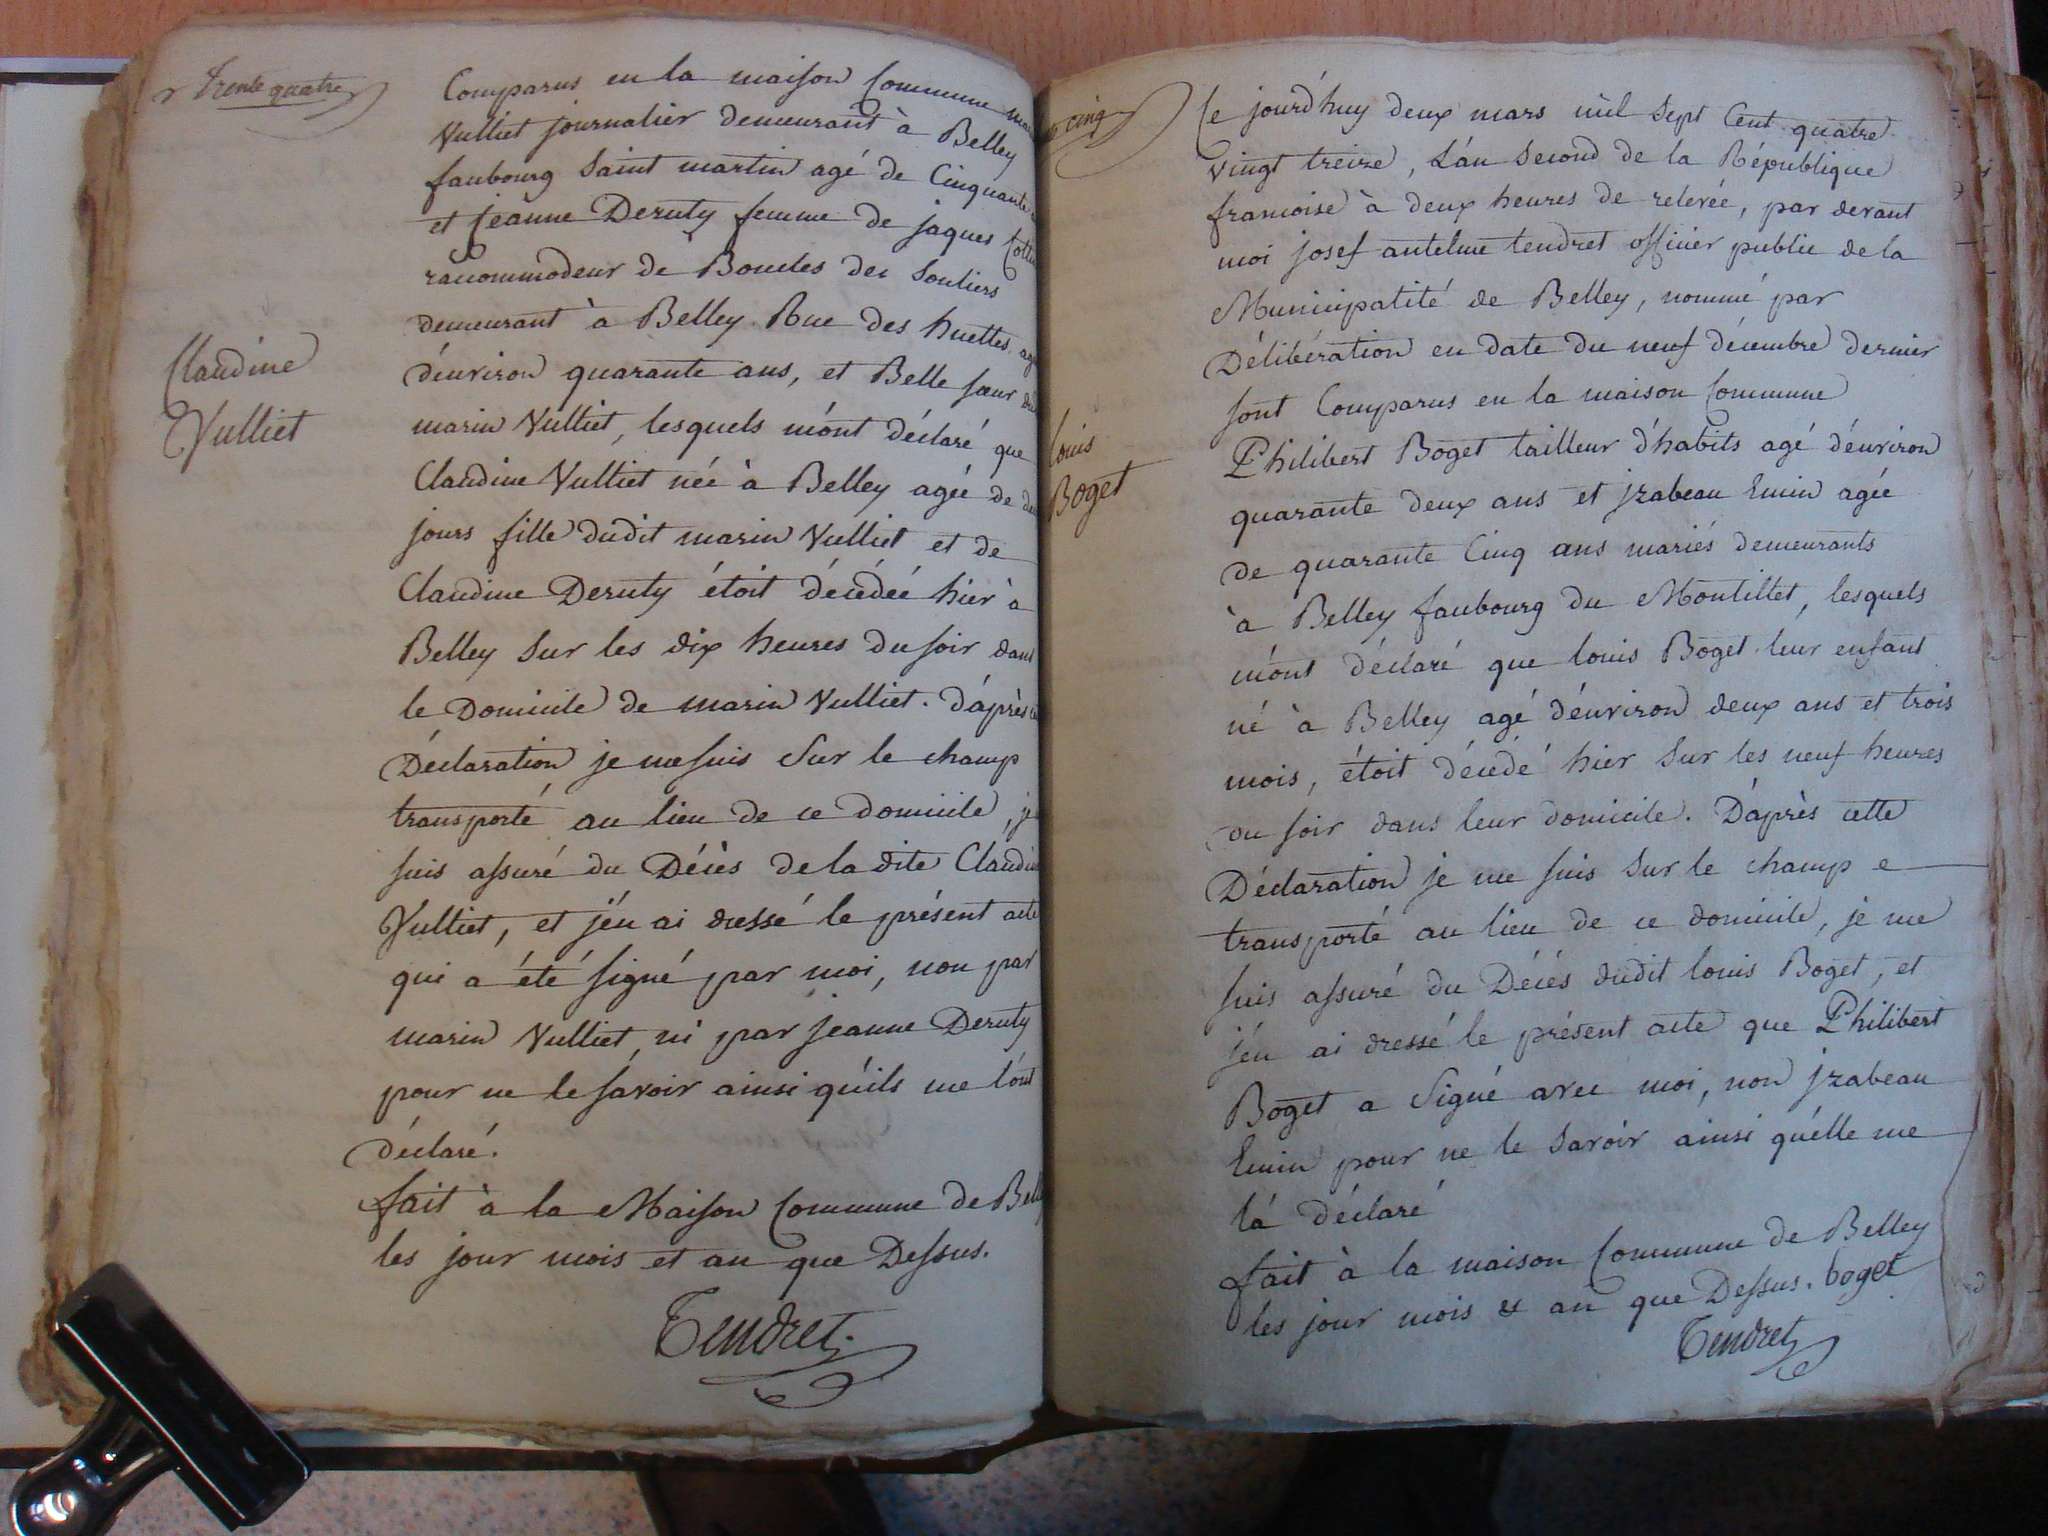 Trente quatre
Comparus en la maison Commune
Vulliet journalier demeurant à Belley
faubourg Saint martin agé de Cinquante
et jeanne Deruty femme de jaques
racommodeur de Boucles des Souliers
demeurant à Belley Rue des huettes
d'énviron quarante ans, et Belle sœur
marin Vulliet, lesquels m'ónt déclaré que
Claudine
Vulliet
Claudine Vulliet née à Belley agée de
jours fille dudit marin Vulliet et de
Claudine Deruty étoit décédée hier à
Belley Sur les dix heures du soir dans
le Domicile de marin Vulliet. D'áprès
Déclaration je me suis Sur le champ
transporté au lieu de ce domicile, je
suis assuré du Décès de la dite Claudine
Vulliet, et j'én ai dressé le présent acte
qui a été signé par moi, non par
marin Vulliet ni par jeanne Deruty
pour ne le savoir ainsi qu'ils me l'ónt
déclaré.
fait à la Maison Commune de Belley
les jour mois et an que Dessus.
Tendret.
cinq
Ce jourd'huy deux mars mil Sept Cent quatre
vingt treize, L'án Second de la République
francoise à deux heures de relevée, par devant
moi josef antelme tendret officier public de la
Municipalité de Belley, nommé par
Délibération en date du neuf décembre dernier
sont Comparus en la maison Commune
louis
Boget
Philibert Boget tailleur d'habits agé d'énviron
quarante deux ans et jzabeau Emin agée
de quarante Cinq ans mariés demeurants
à Belley faubourg du Montillet, lesquels
m'ónt déclaré que louis Boget leur enfant
né à Belley agé d'énviron deux ans et trois
mois, étoit décédé hier Sur les neuf heures
du soir dans leur domicile. D'áprès cette
Déclaration je me suis Sur le champ
transporté au lieu de ce domicile, je me
suis assuré du Décés dudit louis Boget, et
j'én ai dressé le présent acte que Philibert
Boget a Signé avec moi, non jzabeau
Emin pour ne le Savoir ainsi qu'élle me
l'á déclaré
fait à la maison Commune de Belley
les jour mois & an que Dessus. boget
Tendret